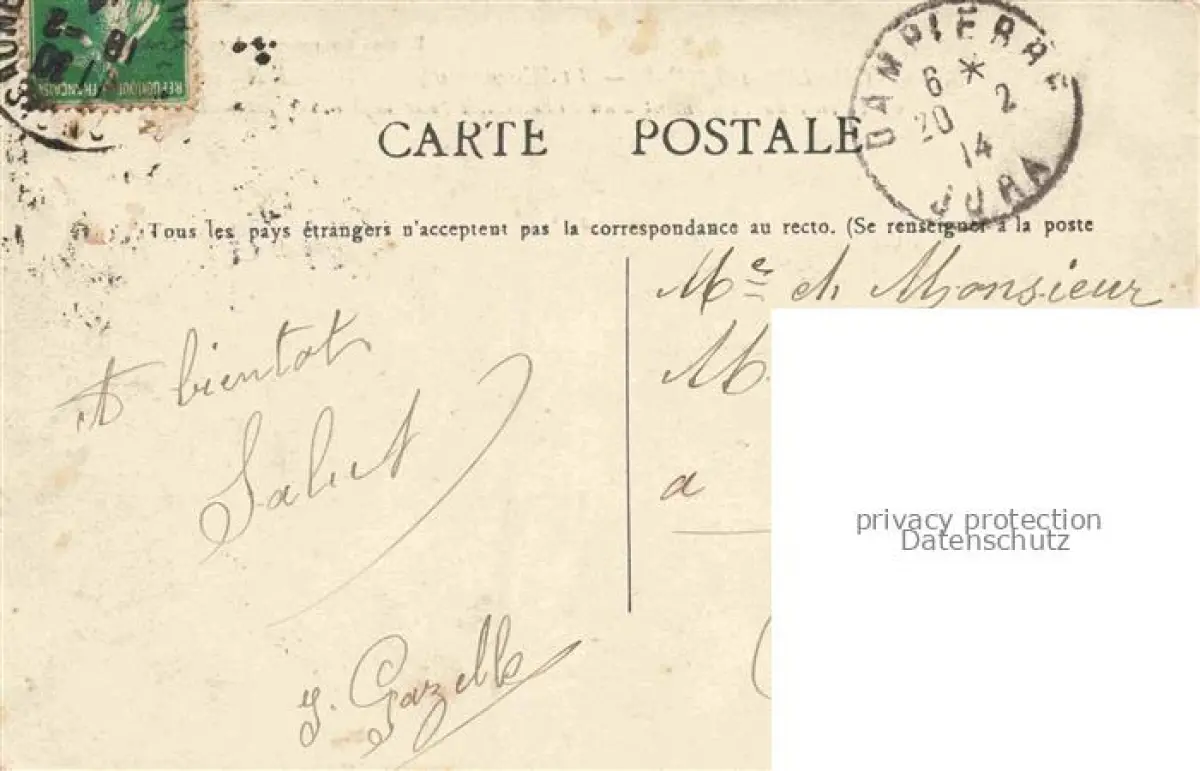 REPUBLIQUE FRANÇAISE
DAMPIERRE
6 *
20 2
14
JURA
CARTE POSTALE
Tous les pays étrangers n'acceptent pas la correspondance au recto. (Se renseigner à la poste
Me et Monsieur
M
A bientot
Salut
a
privacy protection
Datenschutz
Gazelle